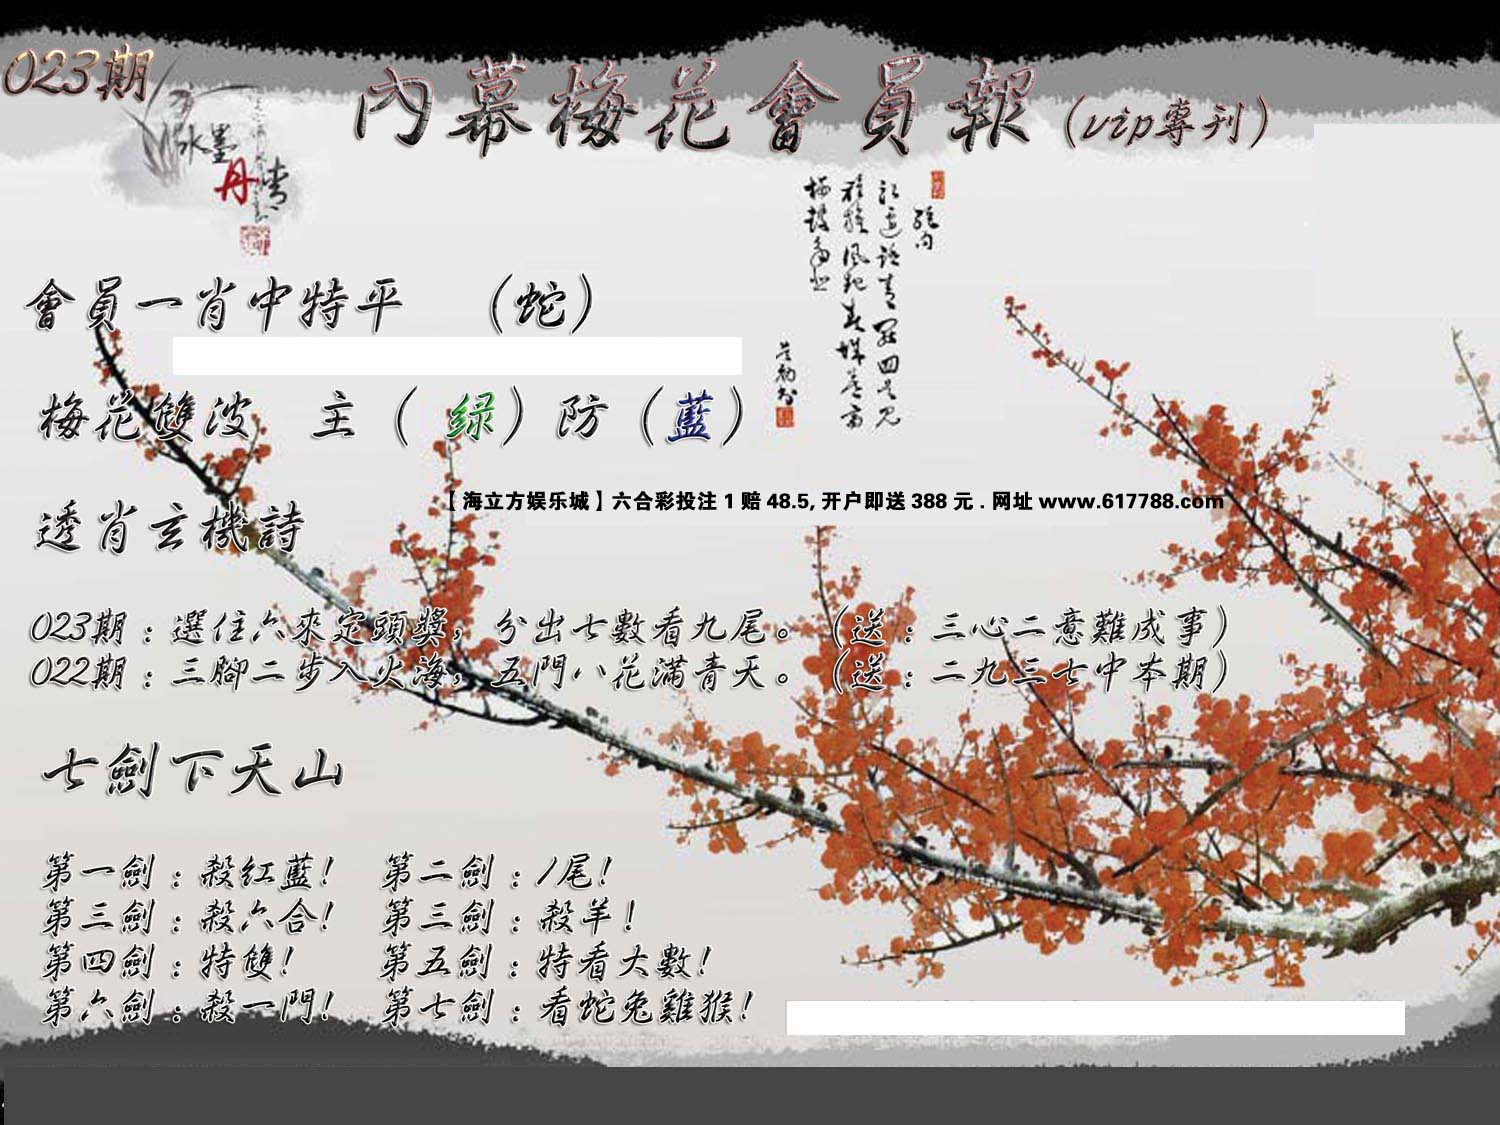 023期
內幕梅花會員報(vip專刊)
水墨
丹青
會員一肖中特平 (蛇)
梅花雙波 主(绿)防(藍)
【海立方娱乐城】六合彩投注1赔48.5,开户即送388元.网址www.617788.com
透肖玄機詩
023期:選住六來定頭獎,分出七數看九尾。(送:三心二意難成事)
022期:三腳二步入火海,五門八花滿青天。(送:二九三七中本期)
七劍下天山
第一劍:殺紅藍! 第二劍:1尾!
第三劍:殺六合! 第三劍:殺羊!
第四劍:特雙! 第五劍:特看大數!
第六劍:殺一門! 第七劍:看蛇兔雞猴!